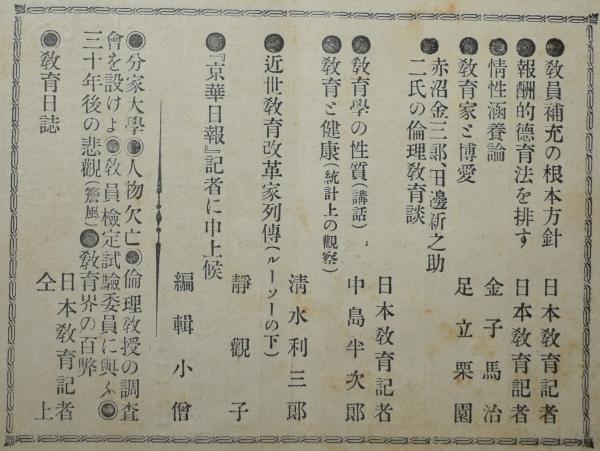 ●敎員補充の根本方針 日本敎育記者
●報酬的德育法を排す 日本敎育記者
●情性涵養論 金子馬治
●敎育家と博愛 足立栗園
●赤沼金三郞、田邊新之助
二氏の倫理敎育談 日本敎育記者
●敎育學の性質(講話) 中島半次郞
●敎育と健康(統計上の觀察)
●近世敎育改革家列傳(ルーソーの下) 淸水利三郞
靜觀子
●『京華日報』記者に申上候 編輯小僧
●分家大學●人物欠亡●倫理敎授の調査
會を設けよ●敎員檢定試驗委員に與ふ●
三十年後の悲觀(簷風)●敎育界の百弊 日本敎育記者
●敎育日誌 仝上